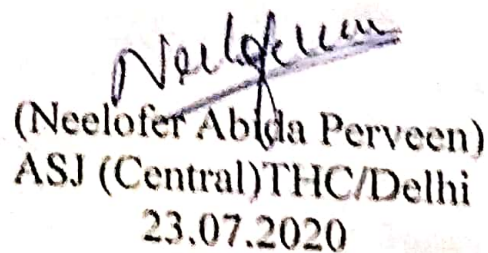 Neelofer
(Neelofer Abida Perveen)
ASJ (Central)THC/Delhi
23.07.2020